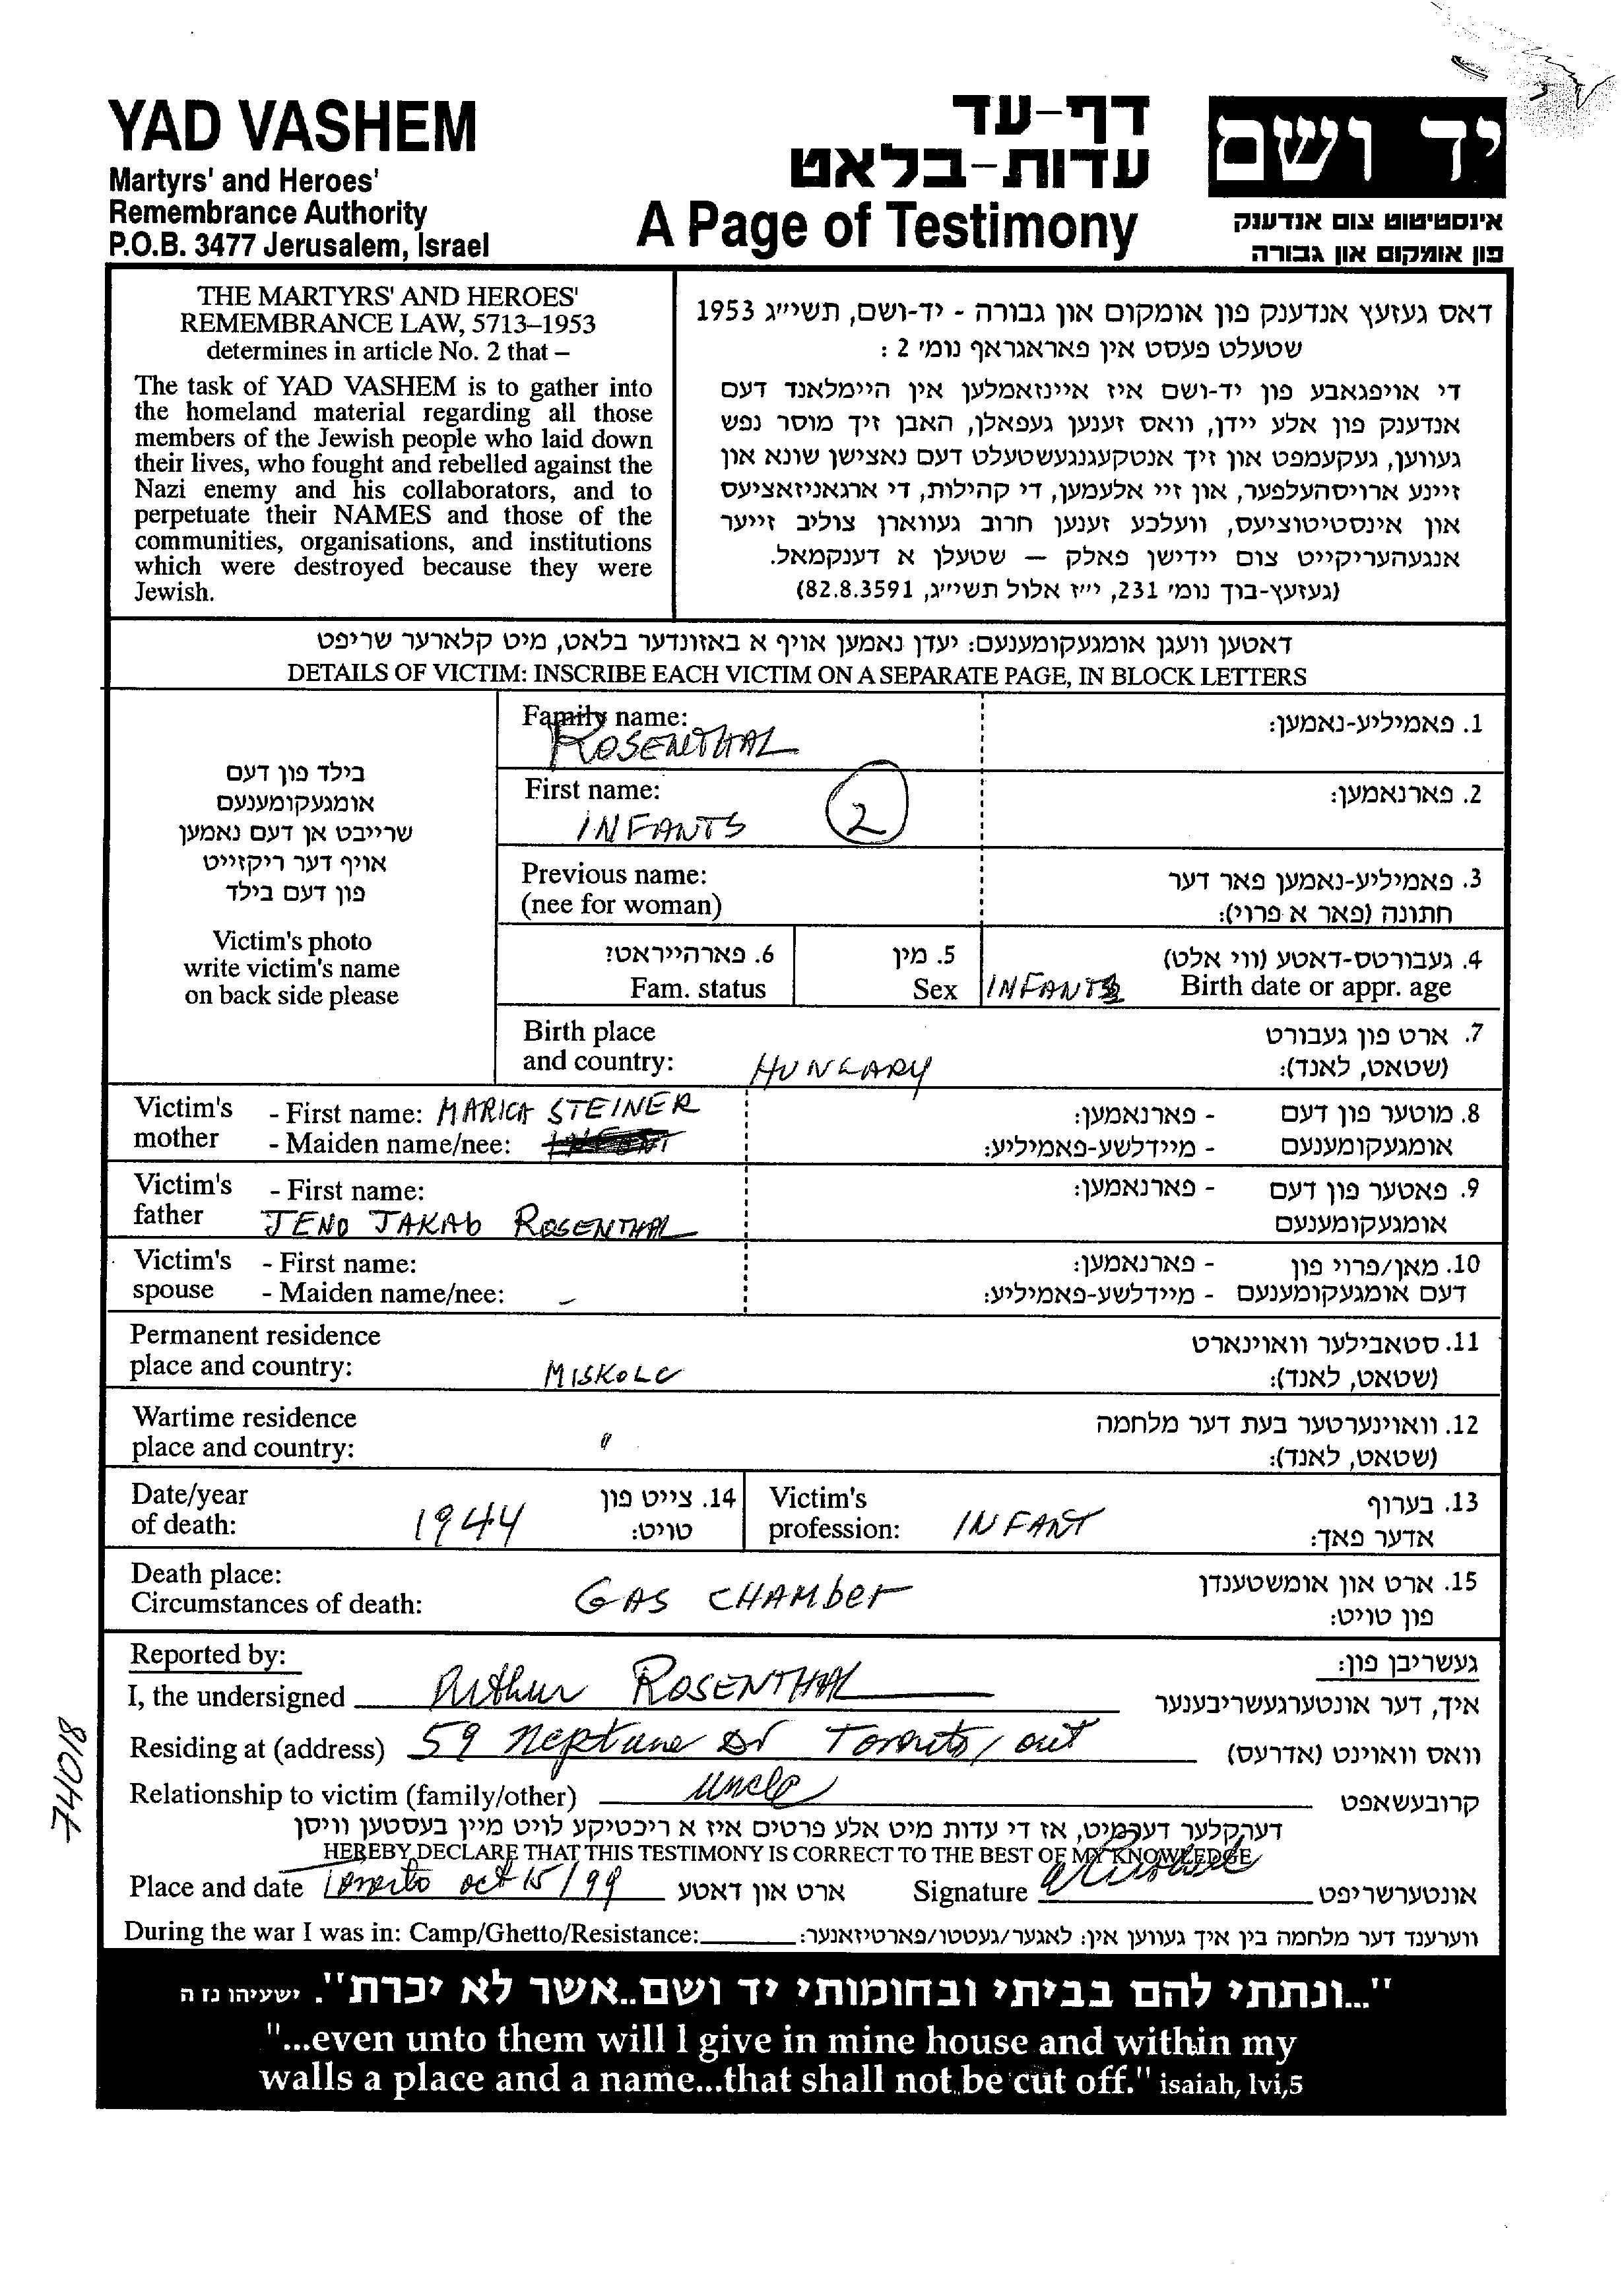 YAD VASHEM
Martyrs' and Heroes'
Remembrance Authority
P.O.B. 3477 Jerusalem, Israel
דף-עד
עדות-בלאט
A Page of Testimony
יד ושם
אינסטיטוט צום אנדענק
פון אומקום און גבורה
THE MARTYRS' AND HEROES'
REMEMBRANCE LAW, 5713–1953
determines in article No. 2 that –
The task of YAD VASHEM is to gather into
the homeland material regarding all those
members of the Jewish people who laid down
their lives, who fought and rebelled against the
Nazi enemy and his collaborators, and to
perpetuate their NAMES and those of the
communities, organisations, and institutions
which were destroyed because they were
Jewish.
דאס געזעץ אנדענק פון אומקום און גבורה - יד-ושם, תשי״ג 1953
שטעלט פעסט אין פאראגראף נומ׳ 2 :
די אויפגאבע פון יד-ושם איז איינזאמלען אין היימלאנד דעם
אנדענק פון אלע יידן, וואס זענען געפאלן, האבן זיך מוסר נפש
געווען, געקעמפט און זיך אנטקעגנגעשטעלט דעם נאצישן שונא און
זיינע ארויסהעלפער, און זיי אלעמען, די קהילות, די ארגאניזאציעס
און אינסטיטוציעס, וועלכע זענען חרוב געווארן צוליב זייער
אנגעהעריקייט צום יידישן פאלק — שטעלן א דענקמאל.
(געזעץ-בוך נומ׳ 231, י״ז אלול תשי״ג, 82.8.3591)
דאטען וועגן אומגעקומענעם: יעדן נאמען אויף א באזונדער בלאט, מיט קלארער שריפט
DETAILS OF VICTIM: INSCRIBE EACH VICTIM ON A SEPARATE PAGE, IN BLOCK LETTERS
בילד פון דעם
אומגעקומענעם
שרייבט אן דעם נאמען
אויף דער ריקזייט
פון דעם בילד
Victim's photo
write victim's name
on back side please
Family name: 1. פאמיליע-נאמען:
ROSENTHAL
First name: 2. פארנאמען:
INFANTS 2
Previous name: 3. פאמיליע-נאמען פאר דער
(nee for woman) חתונה (פאר א פרוי):
6. פארהייראט? 5. מין 4. געבורטס-דאטע (ווי אלט)
Fam. status Sex INFANTS Birth date or appr. age
Birth place 7. ארט פון געבורט
and country: HUNGARY (שטאט, לאנד):
Victim's - First name: MARICA STEINER - פארנאמען: 8. מוטער פון דעם
mother - Maiden name/nee: - מיידלשע-פאמיליע: אומגעקומענעם
Victim's - First name: - פארנאמען: 9. פאטער פון דעם
father JENO JAKAb ROSENTHAL אומגעקומענעם
Victim's - First name: - פארנאמען: 10. מאן/פרוי פון
spouse - Maiden name/nee: – - מיידלשע-פאמיליע: דעם אומגעקומענעם
Permanent residence 11. סטאבילער וואוינארט
place and country: MISKOLC (שטאט, לאנד):
Wartime residence 12. וואוינערטער בעת דער מלחמה
place and country: " (שטאט, לאנד):
Date/year 14. צייט פון Victim's 13. בערוף
of death: 1944 טויט: profession: INFANT אדער פאך:
Death place: 15. ארט און אומשטענדן
Circumstances of death: GAS CHAMber פון טויט:
Reported by: געשריבן פון:
I, the undersigned Arthur ROSENTHAL איך, דער אונטערגעשריבענער
Residing at (address) 59 Neptune Dr Toronto, ont וואס וואוינט (אדרעס)
Relationship to victim (family/other) Uncle קרובעשאפט
דערקלער דערמיט, אז די עדות מיט אלע פרטים איז א ריכטיקע לויט מיין בעסטען וויסן
HEREBY DECLARE THAT THIS TESTIMONY IS CORRECT TO THE BEST OF MY KNOWLEDGE
Place and date Toronto oct 15/99 ארט און דאטע Signature אונטערשריפט
During the war I was in: Camp/Ghetto/Resistance: ווערענד דער מלחמה בין איך געווען אין: לאגער/געטטו/פארטיזאנער:
74018
"...ונתתי להם בביתי ובחומותי יד ושם..אשר לא יכרת". ישעיהו נז ה
"...even unto them will I give in mine house and within my
walls a place and a name...that shall not be cut off." isaiah, lvi,5